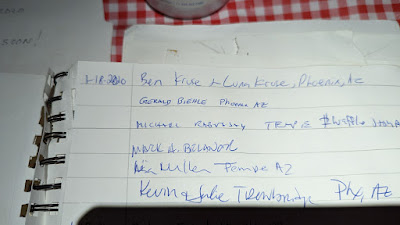 SOON!
1-18-2020 Ben Kruse + Lynn Kruse, Phoenix, AZ
GERALD BIEHLE Phoenix AZ
MICHAEL TEMPE
MARK A. BELANGER
Miller Tempe AZ
Kevin & Julie Trowbridge Phx, AZ